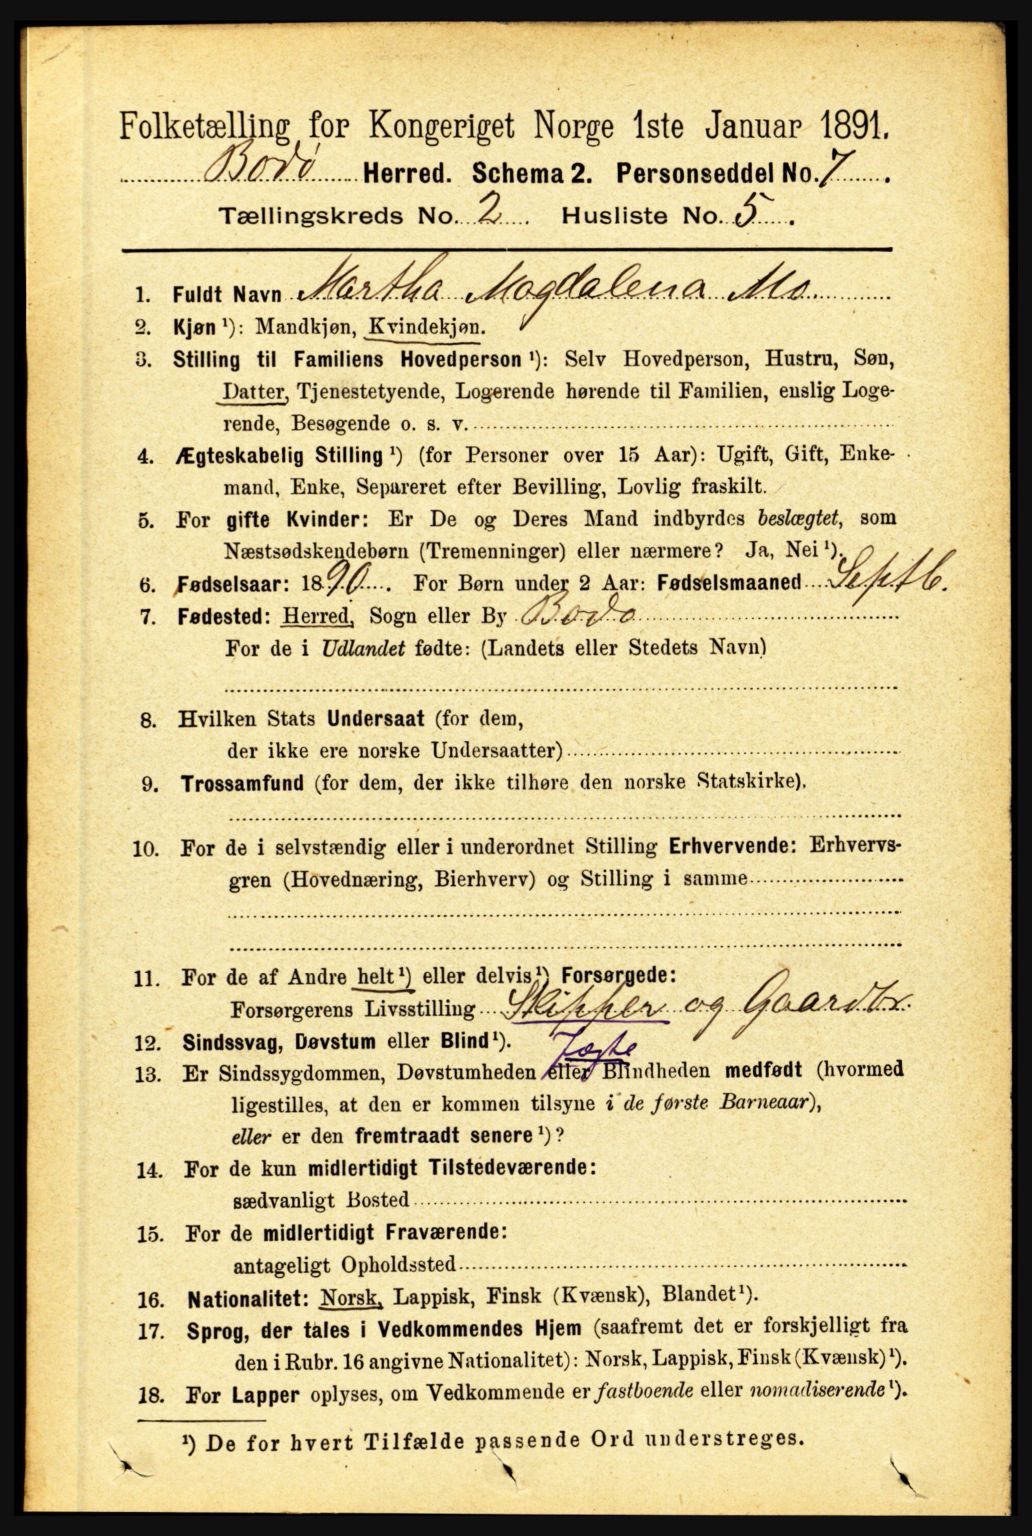 Folketælling for Kongeriget Norge 1ste Januar 1891.
Bodø Herred. Schema 2. Personseddel No. 7.
Tællingskreds No. 2. Husliste No. 5.
1. Fuldt Navn Martha Magdalena Mo
2. Kjøn ¹): Mandkjøn, Kvindekjøn.
3. Stilling til Familiens Hovedperson ¹): Selv Hovedperson, Hustru, Søn,
Datter, Tjenestetyende, Logerende hørende til Familien, enslig Loge-
rende, Besøgende o. s. v.
4. Ægteskabelig Stilling ¹) (for Personer over 15 Aar): Ugift, Gift, Enke-
mand, Enke, Separeret efter Bevilling, Lovlig fraskilt.
5. For gifte Kvinder: Er De og Deres Mand indbyrdes beslægtet, som
Næstsødskendebørn (Tremenninger) eller nærmere? Ja, Nei ¹).
6. Fødselsaar: 1890. For Børn under 2 Aar: Fødselsmaaned Septb.
7. Fødested: Herred, Sogn eller By Bodø
For de i Udlandet fødte: (Landets eller Stedets Navn)
8. Hvilken Stats Undersaat (for dem,
der ikke ere norske Undersaatter)
9. Trossamfund (for dem, der ikke tilhøre den norske Statskirke).
10. For de i selvstændig eller i underordnet Stilling Erhvervende: Erhvervs-
gren (Hovednæring, Bierhverv) og Stilling i samme
11. For de af Andre helt ¹) eller delvis ¹) Forsørgede:
Forsørgerens Livsstilling Skipper og Gaardbr.
12. Sindssvag, Døvstum eller Blind ¹). Jægte
13. Er Sindssygdommen, Døvstumheden eller Blindheden medfødt (hvormed
ligestilles, at den er kommen tilsyne i de første Barneaar),
eller er den fremtraadt senere ¹)?
14. For de kun midlertidigt Tilstedeværende:
sædvanligt Bosted
15. For de midlertidigt Fraværende:
antageligt Opholdssted
16. Nationalitet: Norsk, Lappisk, Finsk (Kvænsk), Blandet ¹).
17. Sprog, der tales i Vedkommendes Hjem (saafremt det er forskjelligt fra
den i Rubr. 16 angivne Nationalitet): Norsk, Lappisk, Finsk (Kvænsk) ¹).
18. For Lapper oplyses, om Vedkommende er fastboende eller nomadiserende ¹).
¹) De for hvert Tilfælde passende Ord understreges.